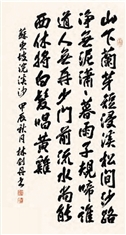 山下蘭芽短浸溪松間沙路
淨無泥瀟瀟暮雨子規啼誰
道人生無再少門前流水尚能
西休將白髮唱黃雞
蘇東坡浣溪沙 甲辰秋月林劍丹書